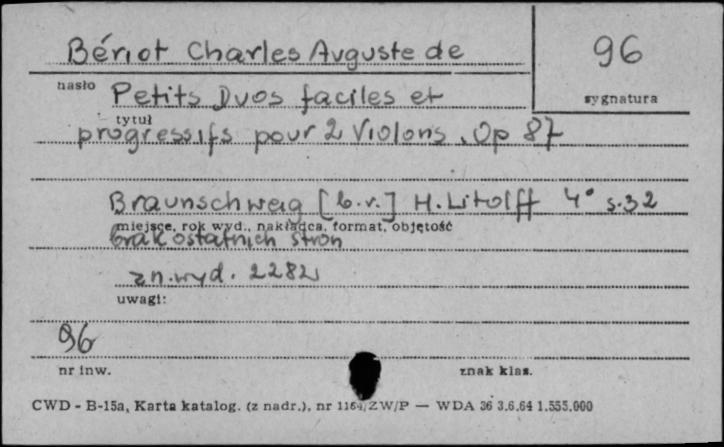 Bériot Charles Auguste de
96
hasło
sygnatura
Petits Duos faciles et
tytuł
progressifs pour 2 Violons, Op 87
Braunschweig [b.r.] H. Litolff 4° s.32
miejsce, rok wyd., nakładca, format, objętość
brak ostatnich stron
zn.wyd. 2282
uwagi:
96
nr inw.
znak klas.
CWD - B-15a, Karta katalog. (z nadr.), nr 1164/ZW/P — WDA 36 3.6.64 1.555.000